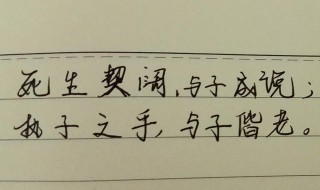 死生契阔,与子成说；
执子之手,与子偕老。